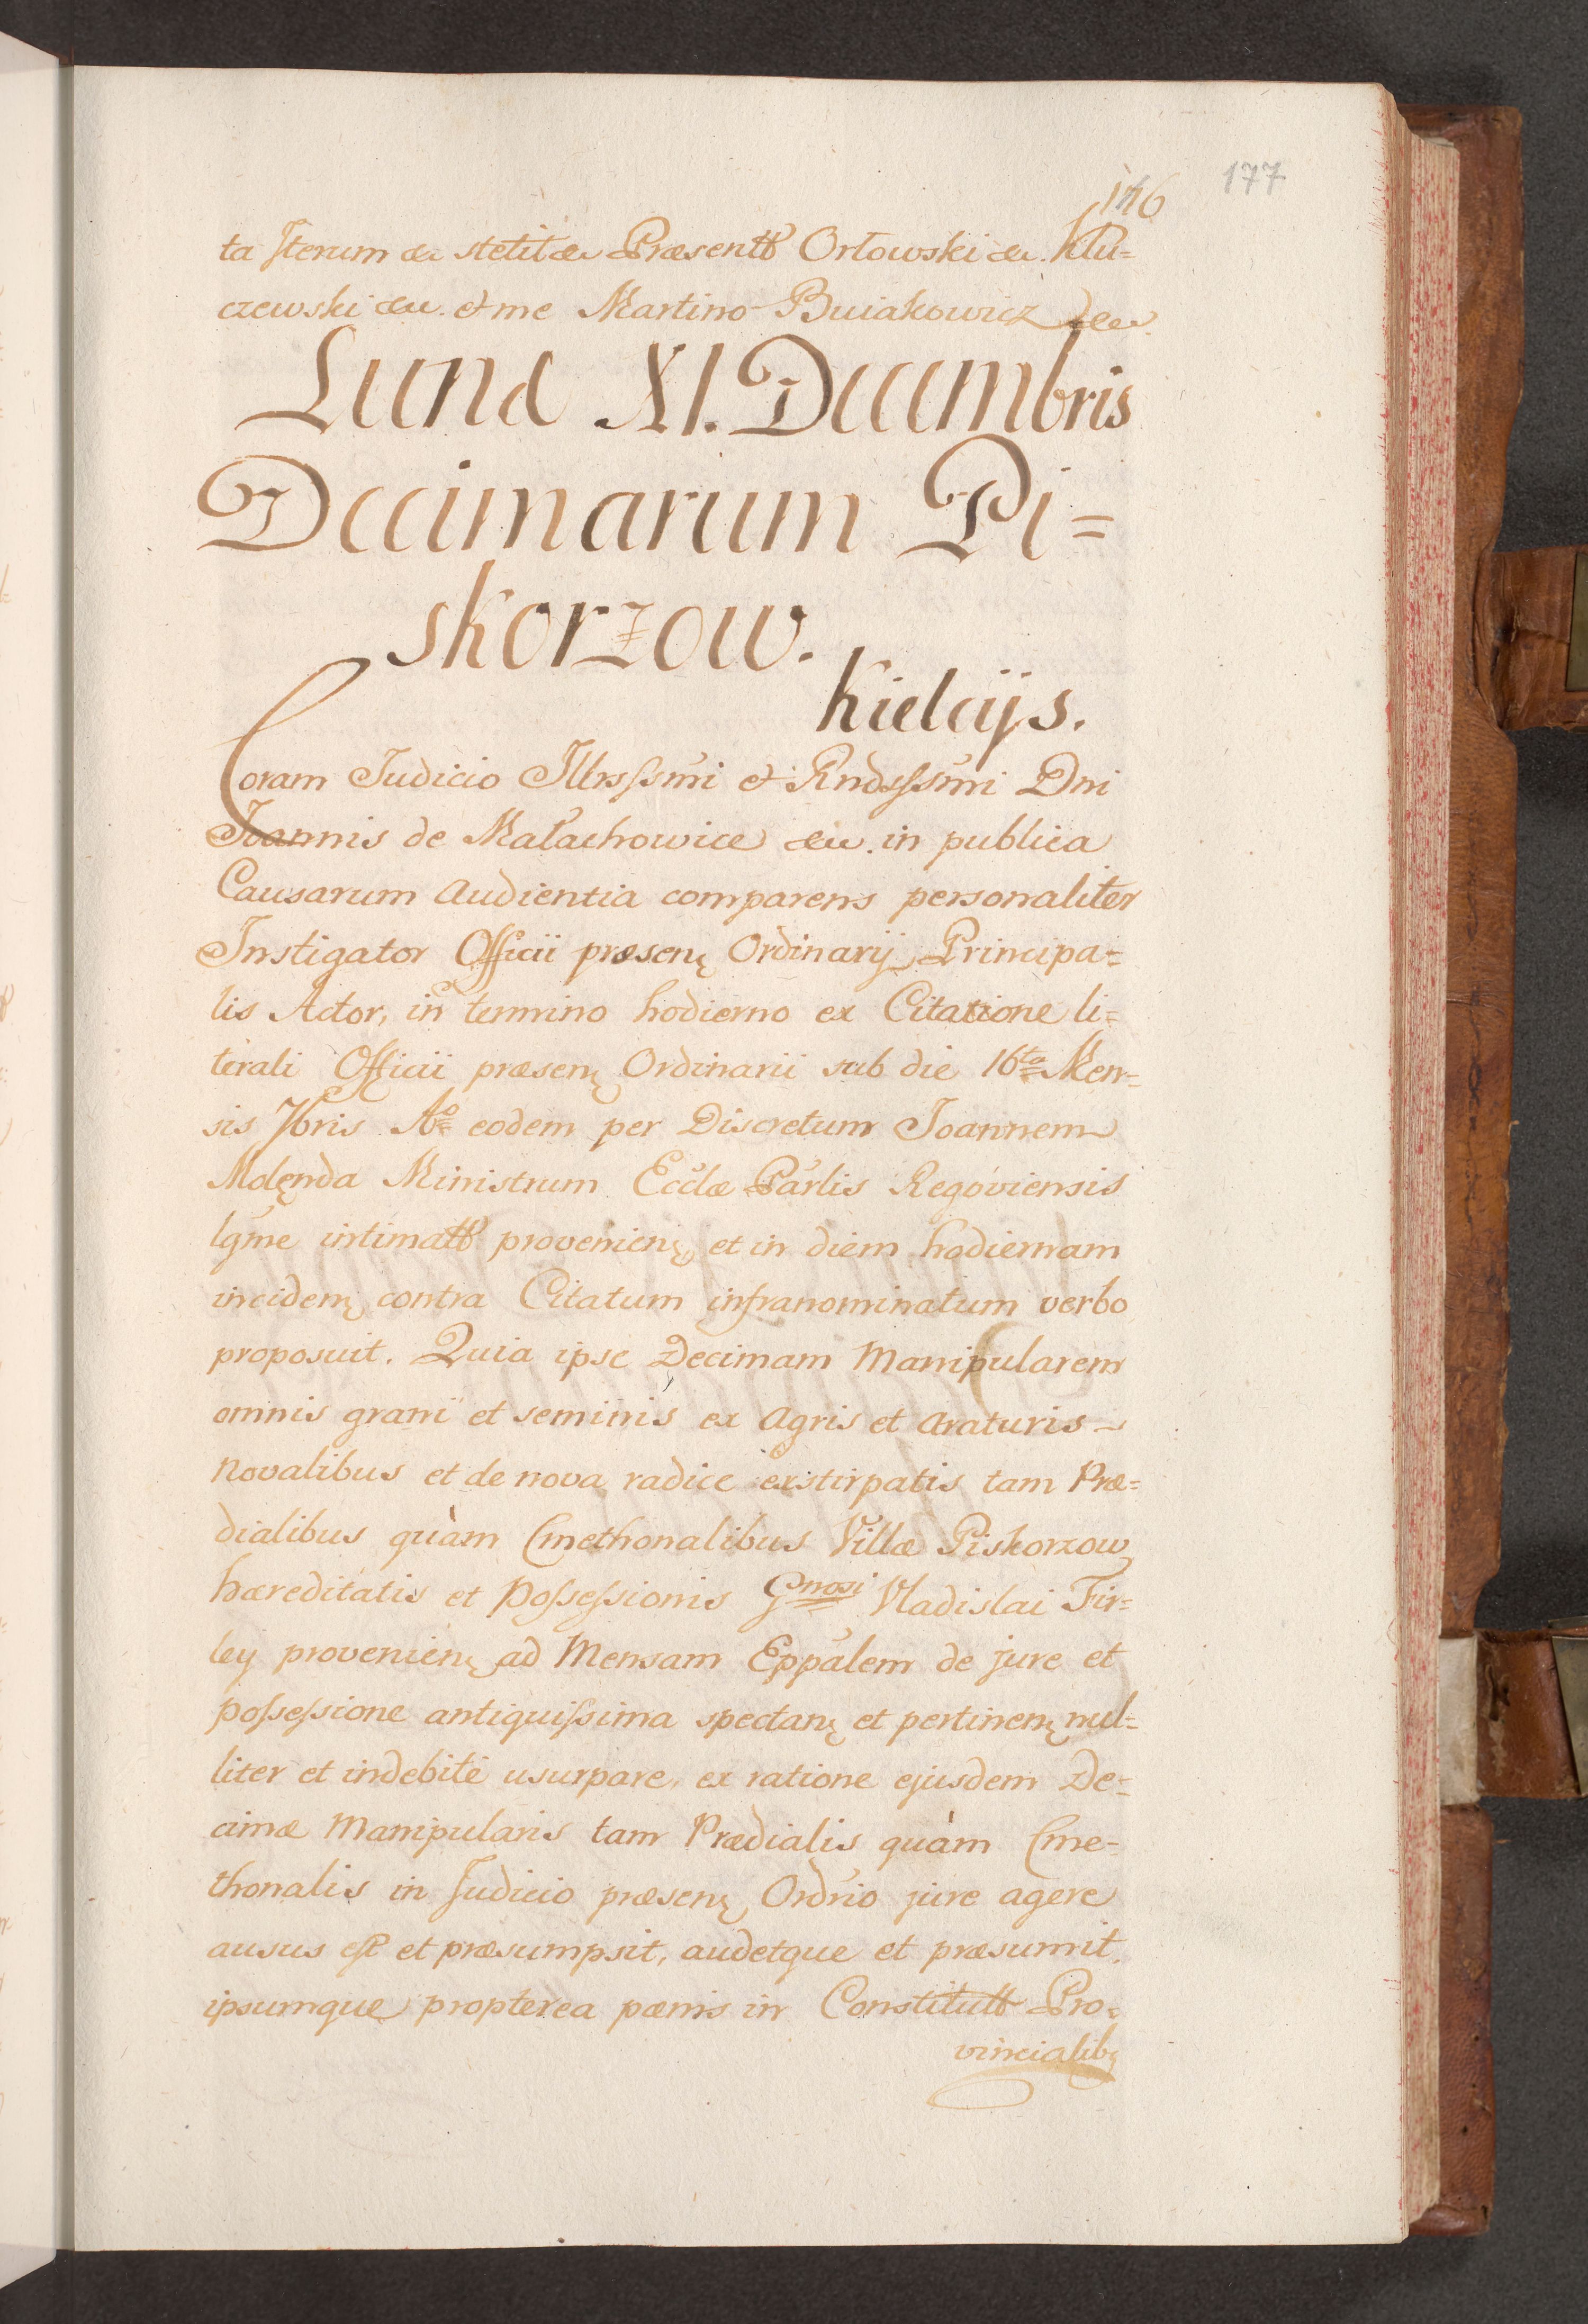 176
177
ta Iterum &c stetit &c Præsentt Orłowski &c. Klu=
czewski &c. et me Martino Buiakowicz &c.
Lunæ XI. Decembris
Decimarum Pi=
skorzow.
Kielcijs.
Coram Judicio Illrssimi et Rndssimi Dni
Joannis de Małachowice &c. in publica
Causarum Audientia comparens personaliter
Instigator Officii præsenę Ordinarij Principa=
lis Actor, in termino hodierno ex Citatione li=
terali Officii præsenę Ordinarii sub die 16ta Men=
sis 7bris Ao eodem per Discretum Joannem
Molęnda Ministrum Ecclæ Parlis Regoviensis
lgme intimatt provenienę, et in diem hodiernam
incidenę contra Citatum infranominatum verbo
proposuit. Quia ipse Decimam Manipularem
omnis grani et seminis ex Agris et Araturis
Novalibus et de nova radice exstirpatis tam Præ=
dialibus quàm Cmethonalibus Villæ Piskorzow
hæreditatis et Possessionis Gnosi Vladislai Fir=
ley provenienę ad Mensam Eppalem de jure et
possessione antiquissima spectanę et pertinenę nul=
liter et indebitè usurpare, ex ratione ejusdem De=
cimæ Manipularis tam Prædialis quàm Cme=
thonalis in Judicio præsenę Ordrio jure agere
ausus est et præsumpsit, audetque et præsumit,
ipsumque propterea pœnis in Constitutt Pro=
vincialibę